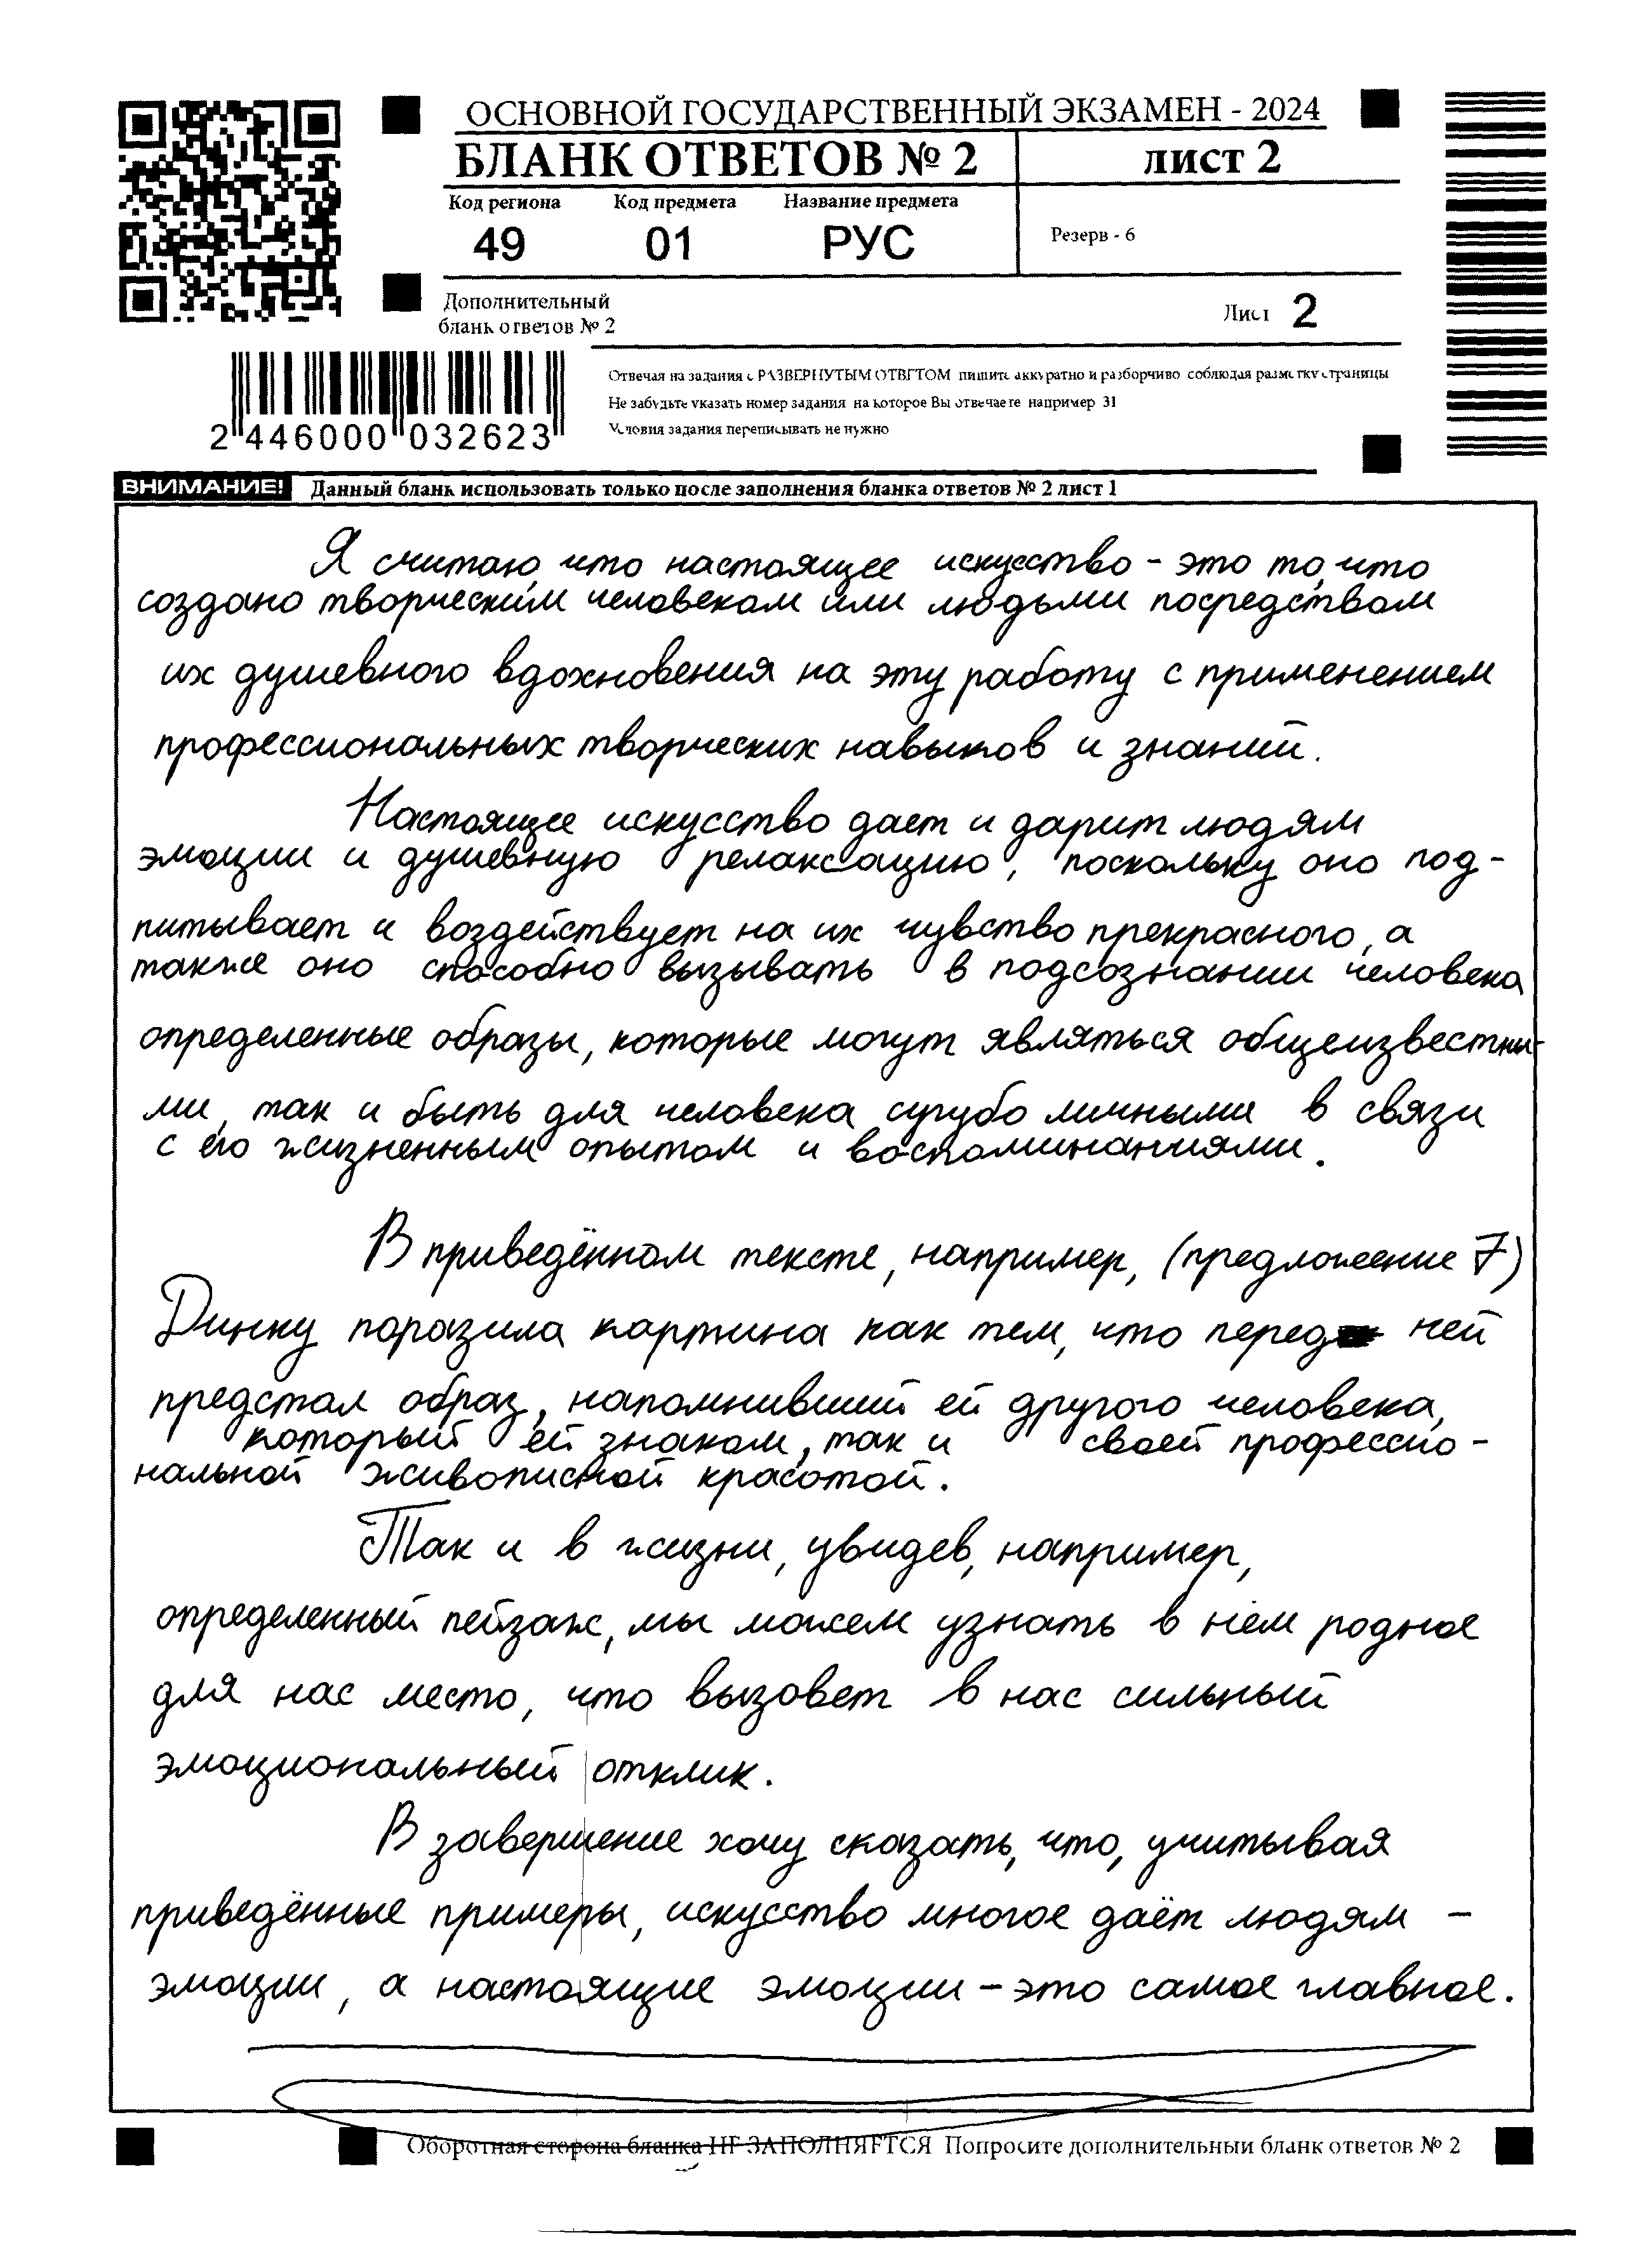 ОСНОВНОЙ ГОСУДАРСТВЕННЫЙ ЭКЗАМЕН - 2024
БЛАНК ОТВЕТОВ № 2
ЛИСТ 2
Код региона Код предмета Название предмета
49 01 РУС
Резерв - 6
Дополнительный
бланк ответов № 2
Лист 2
Отвечая на задания с РАЗВЕРНУТЫМ ОТВЕТОМ пишите аккуратно и разборчиво соблюдая разметку страницы
Не забудьте указать номер задания на которое Вы отвечаете например 31
Условия задания переписывать не нужно
2 446000 032623
ВНИМАНИЕ! Данный бланк использовать только после заполнения бланка ответов № 2 лист 1
Я считаю, что настоящее искусство - это то, что
создано творческим человеком или людьми посредством
их душевного вдохновения на эту работу с применением
профессиональных творческих навыков и знаний.
Настоящее искусство дает и дарит людям
эмоции и душевную релаксацию, поскольку оно под-
питывает и воздействует на их чувство прекрасного, а
также оно способно вызывать в подсознании человека
определенные образы, которые могут являться общеизвестны-
ми, так и быть для человека сугубо личными в связи
с его жизненным опытом и воспоминаниями.
В приведённом тексте, например, (предложение 7)
Динку поразила картина как тем, что перед ней
предстал образ, напомнивший ей другого человека,
который ей знаком, так и своей профессио-
нальной живописной красотой.
Так и в жизни, увидев, например,
определенный пейзаж, мы можем узнать в нём родное
для нас место, что вызовет в нас сильный
эмоциональный отклик.
В завершение хочу сказать, что, учитывая
приведённые примеры, искусство многое даёт людям -
эмоции, а настоящие эмоции - это самое главное.
Оборотная сторона бланка НЕ ЗАПОЛНЯЕТСЯ Попросите дополнительный бланк ответов № 2